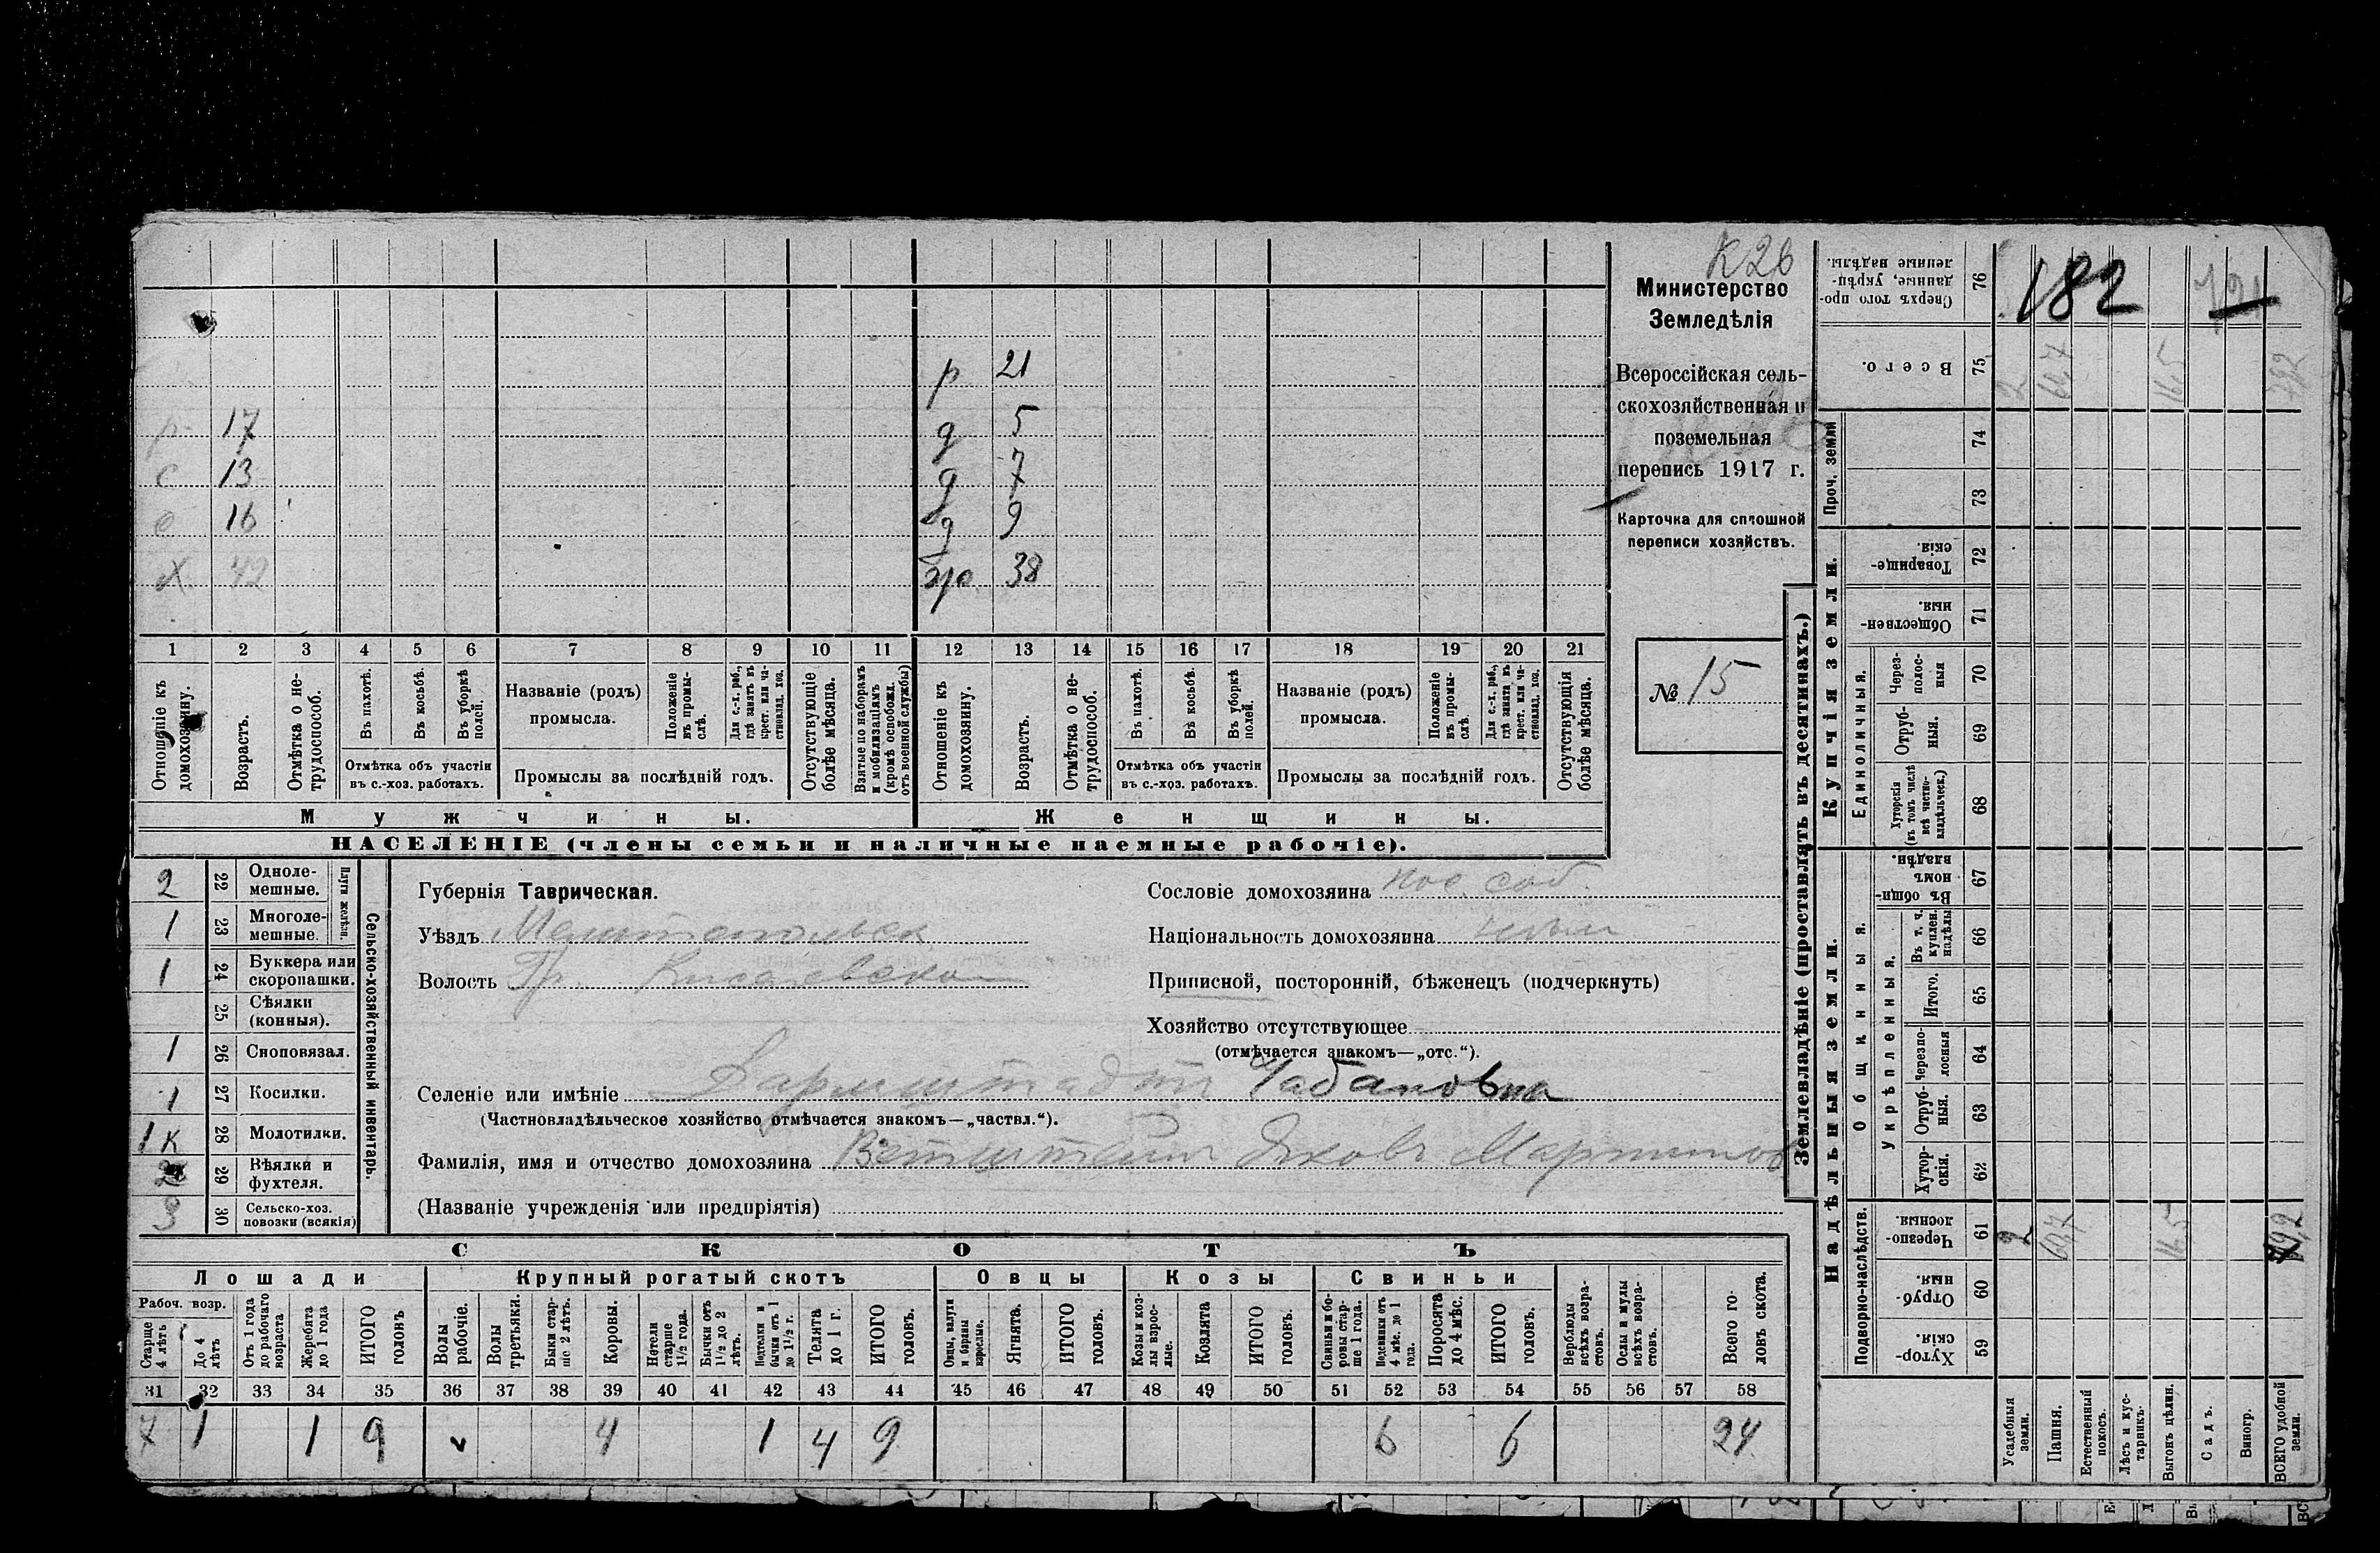 К 26
Министерство
Земледѣлія
Всероссійская сель-
скохозяйственная и
поземельная
перепись 1917 г.
Карточка для сплошной
переписи хозяйствъ.
№ 15
р 21
р 17 д 5
с 13 д 7
с 16 д 9
х 42 38
1 2 3 4 5 6 7 8 9 10 11 12 13 14 15 16 17 18 19 20 21
Отношеніе къ домохозяину.
Возрастъ.
Отмѣтка о не-трудоспособ.
Въ пахотѣ.
Въ косьбѣ.
Въ уборкѣ полей.
Отмѣтка объ участіи
въ с.-хоз. работахъ.
Названіе (родъ)
промысла.
Положеніе въ промы-слѣ.
Для с.-х. раб., гдѣ занятъ въ крест. или ча-стновлад. хоз.
Промыслы за послѣдній годъ.
Отсутствующіе болѣе мѣсяца.
Взятые по наборамъ и мобилизаціямъ (кромѣ освобожд. отъ военной службы)
Отношеніе къ домохозяину.
Возрастъ.
Отмѣтка о не-трудоспособ.
Въ пахотѣ.
Въ косьбѣ.
Въ уборкѣ полей.
Отмѣтка объ участіи
въ с.-хоз. работахъ.
Названіе (родъ)
промысла.
Положеніе въ промы-слѣ.
Для с.-х. раб., гдѣ занята въ крест. или ча-стновлад. хоз.
Промыслы за послѣдній годъ.
Отсутствующія болѣе мѣсяца.
Мужчины. Женщины.
НАСЕЛЕНІЕ (члены семьи и наличные наемные рабочіе).
2 22 Одноле-мешные.
1 23 Многоле-мешные.
Плуги желѣзн.
1 24 Буккера или скоропашки.
25 Сѣялки (конныя).
1 26 Сноповязал.
1 27 Косилки.
1 к 28 Молотилки.
29 Вѣялки и фухтеля.
3 30 Сельско-хоз. повозки (всякія)
Сельско-хозяйственный инвентарь.
Губернія Таврическая.
Уѣздъ Мелитопольск
Волость
Селеніе или имѣніе Дармштадтъ Чабановка
(Частновладѣльческое хозяйство отмѣчается знакомъ—„частвл.“).
Фамилія, имя и отчество домохозяина Ветштейнъ Яковъ Мартинов
(Названіе учрежденія или предпріятія)
Сословіе домохозяина пос. соб.
Національность домохозяина
Приписной, посторонній, бѣженецъ (подчеркнуть)
Хозяйство отсутствующее
(отмѣчается знакомъ—„отс.“).
СКОТЪ
Лошади Крупный рогатый скотъ Овцы Козы Свиньи
Рабоч. возр.
Старше 4 лѣтъ
До 4 лѣтъ
Отъ 1 года до рабочаго возраста
Жеребята до 1 года
ИТОГО головъ
Волы рабочіе.
Волы третьяки.
Быки стар-ше 2 лѣтъ.
Коровы.
Нетели старше 1½ года.
Бычки отъ 1½ до 2 лѣтъ.
Подтелки и бычки отъ 1 до 1½ г.
Телята до 1 г.
ИТОГО головъ.
Овцы, валухи и бараны взрослые.
Ягнята.
ИТОГО головъ.
Козы и коз-лы взрос-лые.
Козлята
ИТОГО головъ.
Свиньи и бо-ровы стар-ше 1 года.
Подсвинки отъ 4 мѣс. до 1 года.
Поросята до 4 мѣс.
ИТОГО головъ.
Верблюды всѣхъ возра-стовъ.
Ослы и мулы всѣхъ возра-стовъ.
Всего го-ловъ скота.
31 32 33 34 35 36 37 38 39 40 41 42 43 44 45 46 47 48 49 50 51 52 53 54 55 56 57 58
7 1 1 9 4 1 4 9 6 6 24
Землевладѣніе (проставлять въ десятинахъ.)
Купчія земли.
Надѣльныя земли.
76 Сверхъ того про-данные, укрѣп-ленные надѣлы. 182
75 Всего. 2 16,5
Проч. земли
74
73
72 Товарище-скія.
71 Обществен-ныя.
Единоличныя.
70 Через-полос-ныя
69 Отруб-ныя.
68 Хуторскія (въ томъ числѣ всѣ частно-владѣльческ.)
Общинныя.
67 Въ общи-номъ владѣн.
Укрѣпленныя.
66 Въ т. ч. куплен. надѣлы
65 Итого.
64 Черезпо-лосныя
63 Отруб-ныя.
62 Хутор-скія.
Подворно-наслѣдств.
61 Черезпо-лосныя. 2 16,5
60 Отруб-ныя.
59 Хутор-скія.
Усадебныя земли.
Пашня.
Естественный покосъ.
Лѣсъ и кус-тарникъ.
Выгонъ цѣлин.
Садъ.
Виногр.
ВСЕГО удобной земли.